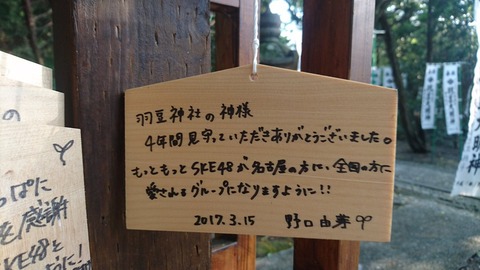 羽豆神社の神様
4年間見守っていただきありがとうございました。
もっともっとSKE48が名古屋の方に、全国の方に
愛されるグループになりますように!!
2017.3.15 野口由芽
の
ぱに
を感謝
SKE48を